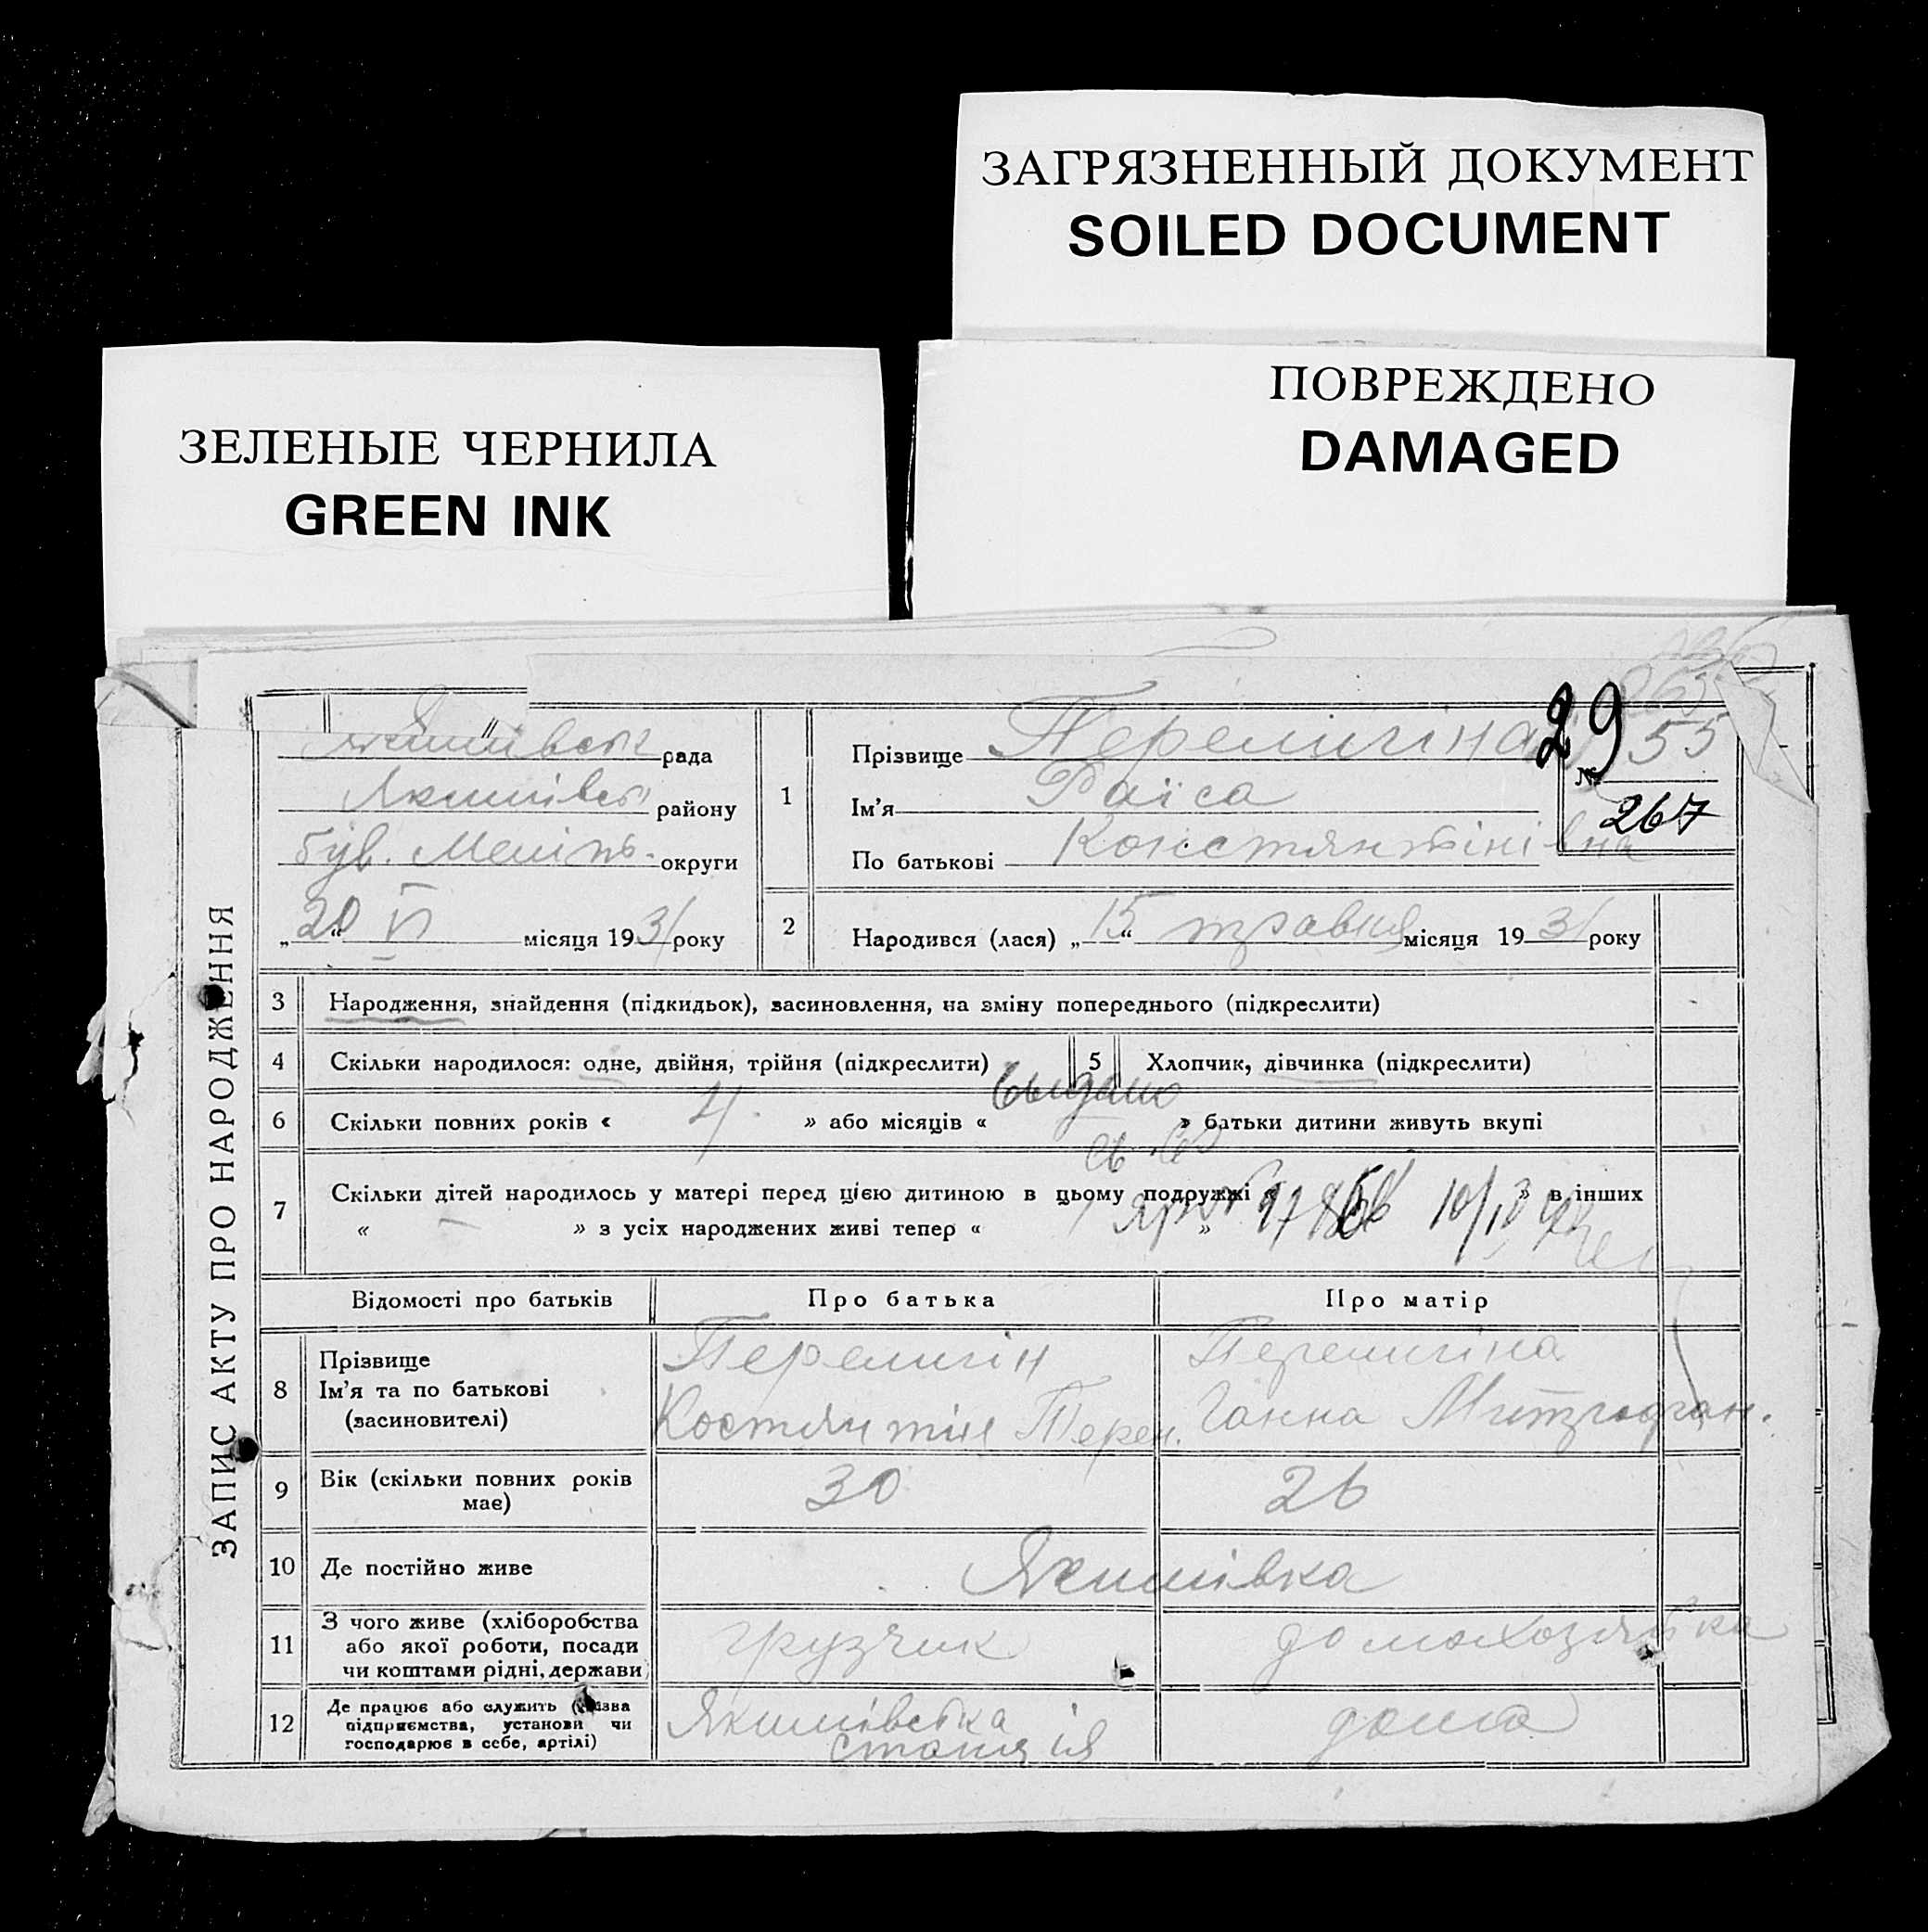 ЗАГРЯЗНЕННЫЙ ДОКУМЕНТ
SOILED DOCUMENT
ПОВРЕЖДЕНО
DAMAGED
ЗЕЛЕНЫЕ ЧЕРНИЛА
GREEN INK
ЗАПИС АКТУ ПРО НАРОДЖЕННЯ
рада
району
був. округи
„20“ VI місяця 1931 року
29
55
№
267
1
Прізвище
Ім’я Раїса
По батькові Констянтінівна
2
Народився (лася) „15“ травня місяця 1931 року
3 Народження, знайдення (підкидьок), засиновлення, на зміну попереднього (підкреслити)
4 Скільки народилося: одне, двійня, трійня (підкреслити) 5 Хлопчик, дівчинка (підкреслити)
выдано
6 Скільки повних років « 4 » або місяців « » батьки дитини живуть вкупі
7 Скільки дітей народилось у матері перед цією дитиною в цьому подружжі « » в інших
« — » з усіх народжених живі тепер « »
Відомості про батьків Про батька Про матір
8 Прізвище
Ім’я та по батькові
(засиновителі)
Костянтін Терен. Ганна Митрофан.
9 Вік (скільки повних років має) 30 26
10 Де постійно живе Якимівка
11 З чого живе (хліборобства
або якої роботи, посади
чи коштами рідні, держави) грузчик домохозяйка
12 Де працює або служить (назва
підприємства, установи чи
господарює в себе, артілі) Якимівська
станція дома